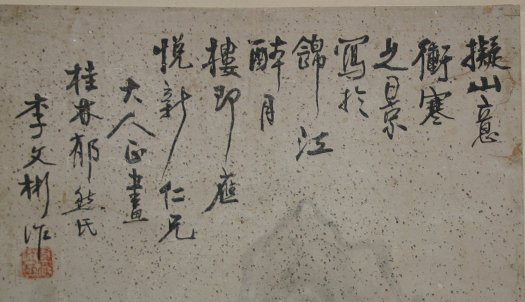 擬山意
衝寒
之景
寫於
錦江
醉月
樓即應
悅新仁兄
大人正畫
桂林郁然氏
李文彬作